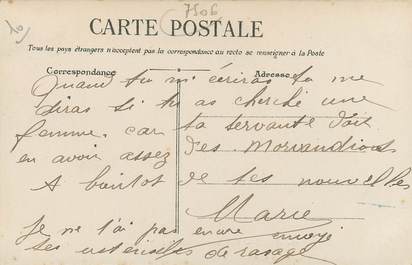 7506
CARTE POSTALE
Tous les pays étrangers n'acceptent pas la correspondance au recto se renseigner à la Poste
Correspondance Adresse
Quand tu m'écriras tu me
diras si tu as cherché une
femme, car ta servante doit
en avoir assez des Morvandiaux
A bientot de tes nouvelles
Marie
Je ne t'ai pas encore envoyé
tes ustensiles de rasage